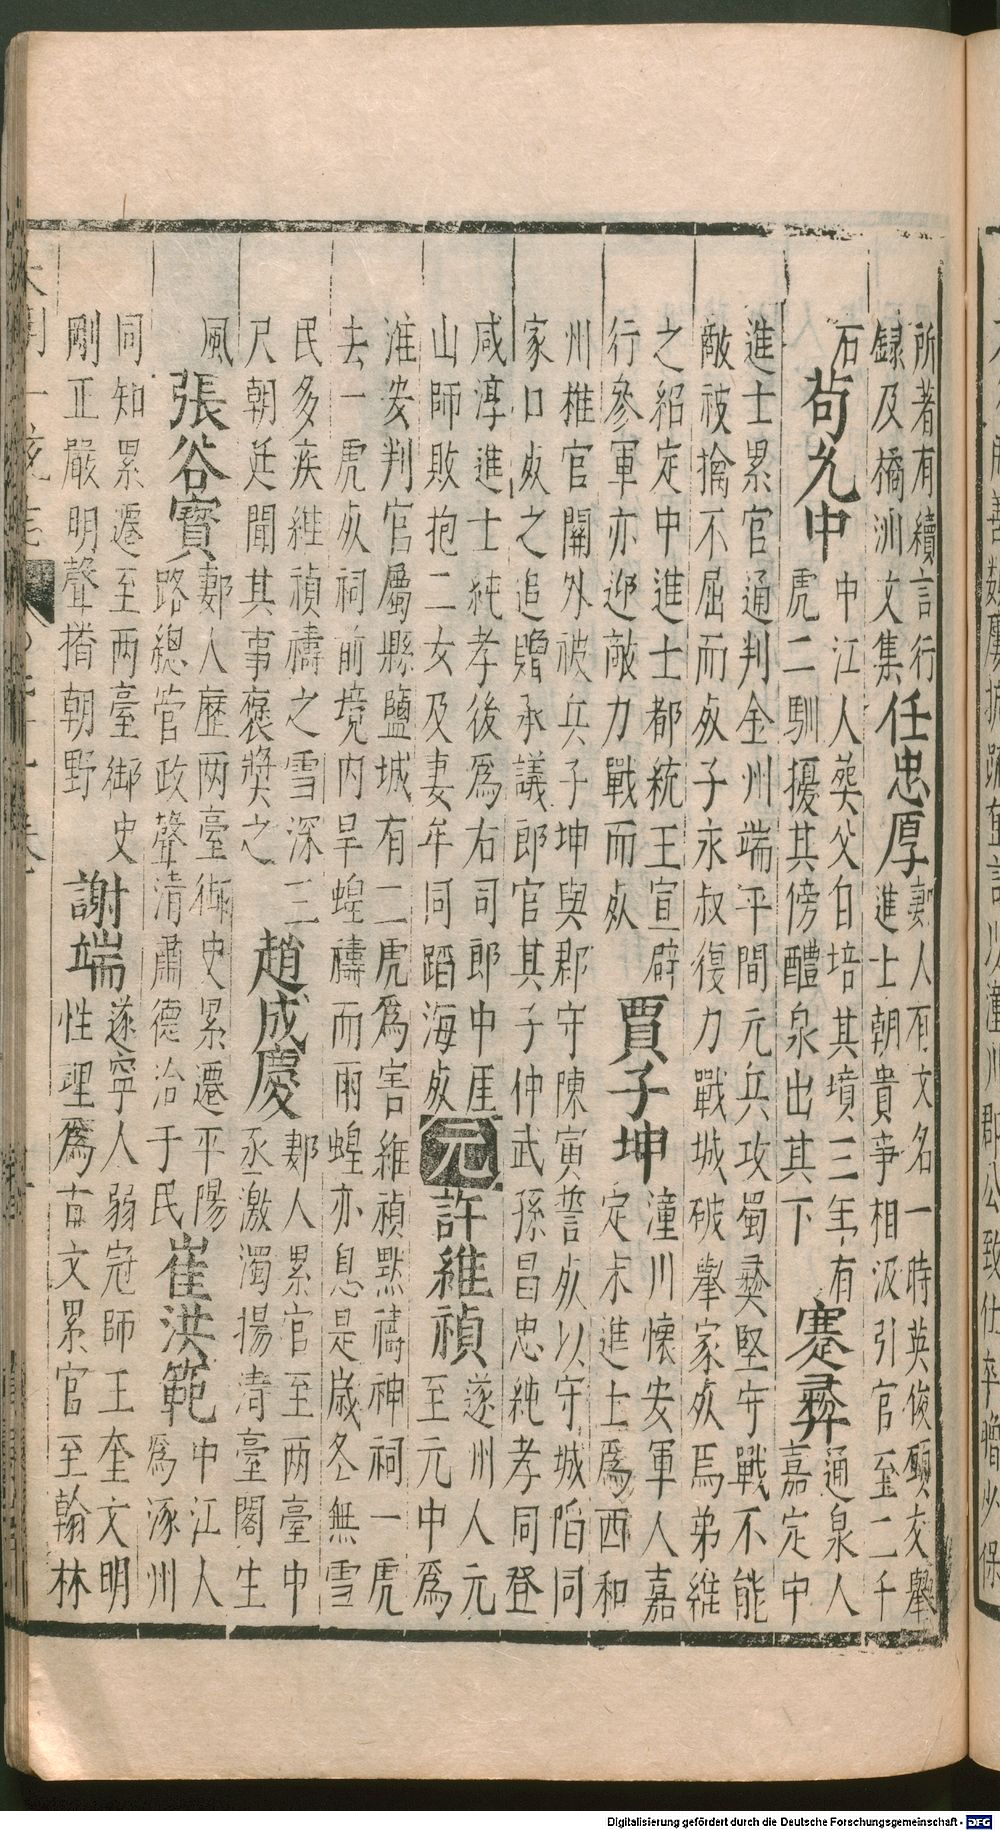 所著有續言行
録及橋洲文集
任忠厚
郪人有文名一時英俊願交舉
進士朝貴爭相汲引官至二千
石
苟允中
中江人葬父自培其墳三年有
虎二馴擾其傍醴泉出其下
蹇彝
通泉人
嘉定中
進士累官通判金州端平間元兵攻蜀彝堅守戰不能
敵被擒不屈而死子永叔復力戰城破舉家死焉弟維
之紹定中進士都統王宣辟
行參軍亦迎敵力戰而死
賈子坤
潼川懷安軍人嘉
定末進士爲西和
州推官關外被兵子坤與郡守陳寅誓死以守城陷同
家口死之追贈承議郎官其子仲武孫昌忠純孝同登
咸淳進士純孝後爲右司郎中厓
山師敗抱二女及妻牟同蹈海死
元
許維禎
遂州人元
至元中爲
淮安判官屬縣鹽城有二虎爲害維禎默禱神祠一虎
去一虎死祠前境内旱蝗禱而雨蝗亦息是歲冬無雪
民多疾維禎禱之雪深三
尺朝廷聞其事褒奬之
趙成慶
郪人累官至两臺中
丞激濁揚清臺閣生
風
張谷寳
郪人歷两臺御史累遷平陽
路總管政聲清肅德洽于民
崔洪範
中江人
爲涿州
同知累遷至两臺御史
剛正嚴明聲揩朝野
謝端
遂寧人弱冠師王奎文明
性理爲古文累官至翰林
Digitalisierung gefördert durch die Deutsche Forschungsgemeinschaft - DFG